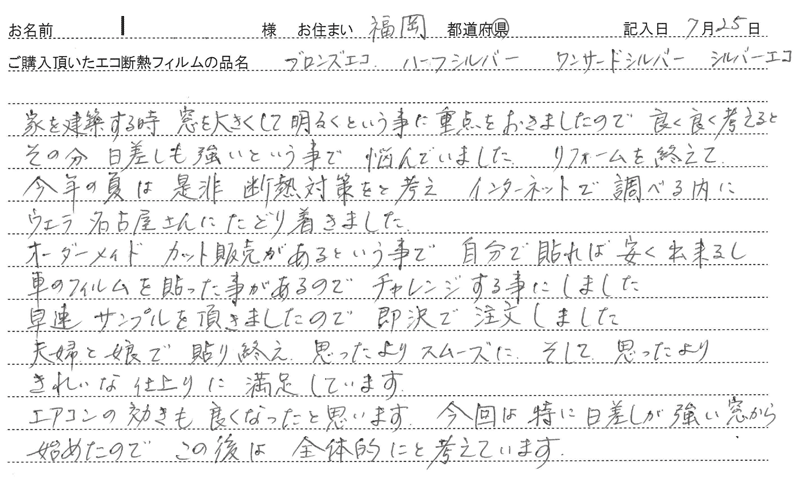 お名前 様 お住まい 福岡 都道府県 記入日 7月25日
ご購入頂いたエコ断熱フィルムの品名 ブロンズエコ ハーフシルバー ワンサードシルバー シルバーエコ
家を建築する時 窓を大きくして明るくという事に重点をおきましたので 良く良く考えると
その分 日差しも強いという事で 悩んでいました リフォームを終えて
今年の夏は是非 断熱対策をと考え インターネットで調べる内に
ウエラ名古屋さんにたどり着きました
オーダーメイド カット販売があるという事で 自分で貼れば安く出来るし
車のフィルムを貼った事があるので チャレンジする事にしました
早速 サンプルを頂きましたので 即決で注文しました
夫婦と娘で 貼り終え 思ったよりスムーズに そして 思ったより
きれいな仕上りに 満足しています
エアコンの効きも良くなったと思います 今回は特に日差しが強い窓から
始めたので この後は 全体的にと考えています